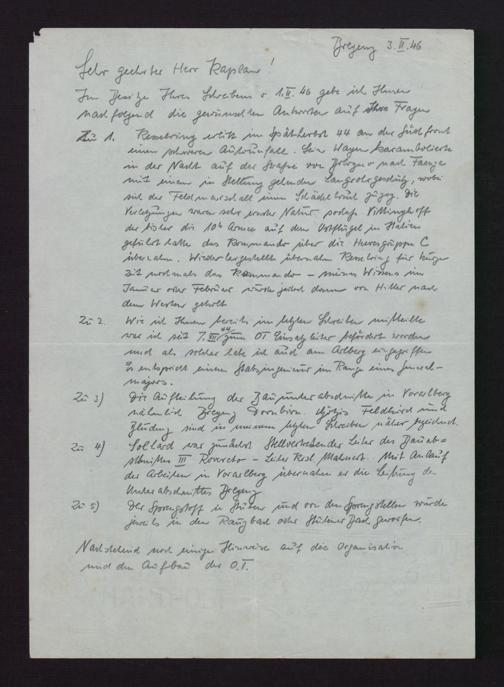 Bregenz 3.II.46
Sehr geehrter Herr Kaplan!
Im Besitze Ihres Schreibens v 1.II.46 gebe ich Ihnen
nachfolgend die gewünschten Antworten auf Ihre Fragen
Zu 1. Kesselring erlitt im Spätherbst 44 an der Südfront
einen schweren Autounfall. Sein Wagen karambolierte
in der Nacht auf der Straße von Bologna nach Faenza
mit einem in Stellung gehenden Langrohrgeschütz, wobei
sich der Feldmarschall einen Schädelbruch zuzog. Die
Verletzungen waren sehr ernster Natur, sodaß Vittinghoff
der bisher die 10te Armee auf dem Ostflügel in Italien
geführt hatte das Kommando über die Heeresgruppe C
übernahm. Wiederhergestellt übernahm Kesselring für kurze
Zeit nochmals das Kommando – meines Wissens im
Januar oder Februar wurde jedoch dann von Hitler nach
dem Westen geholt
Zu 2. Wie ich Ihnen bereits im letzten Schreiben mitteilte
war ich seit 7.VIII 44 zum OT Einsatzleiter befördert worden
und als solcher habe ich auch am Arlberg eingegriffen
Es entspricht einem Stabsingenieur im Range eines General-
majors.
Zu 3) Die Aufteilung der Bauunterabschnitte in Vorarlberg
nämlich Bregenz Dornbirn Feldkirch und
Bludenz sind in meinem letzten Schreiben näher bezeichnet.
Zu 4) Sollard war zunächst Stellvertretender Leiter des Bauab-
schnittes III Rovereto – Leiter Mit Anlauf
der Arbeiten in Vorarlberg übernahm er die Leitung des
Unterabschnittes Bregenz
Zu 5) Der Sprengstoff in und von den Sprengstellen wurde
jeweils in den oder geworfen.
Nachstehend noch einige Hinweise auf die Organisation
und den Aufbau der O.T.